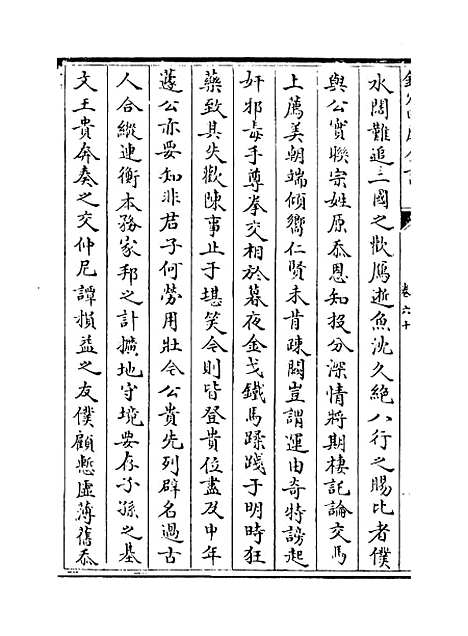 欽定四庫全書
卷六十
水闊難追三國之歡鴈逝魚沈久絶八行之賜比者僕
與公實聯宗姓原忝恩知投分深情將期棲託論交馬
上薦美朝端傾嚮仁賢未肯疎闊豈謂運由奇特謗起
奸邪毒手尊拳交相於暮夜金戈鐵馬蹂踐于明時狂
藥致其失歡陳事止于堪笑今則皆登貴位盡及中年
蘧公亦要知非君子何勞用壯今公貴先列辟名過古
人合縱連衡本務家邦之計擴地守境要存子孫之基
文王貴奔奏之交仲尼譚損益之友僕顧慙虛薄舊忝